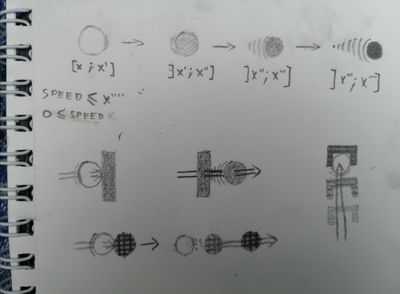 [x ; x']
]x' ; x'']
]x'' ; x''']
]x''' ; x'''']
SPEED ⩽ x''''
0 ⩽ SPEED